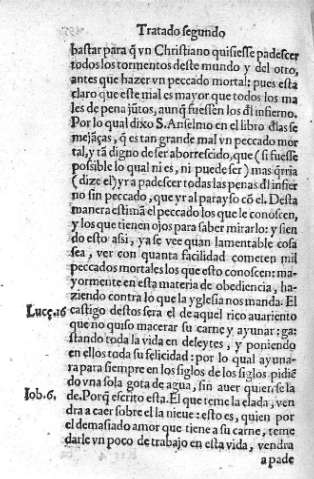 Tratado segundo
bastar para q̃ vn Christiano quisiesse padescer
todos los tormentos deste mundo y del otro,
antes que hazer vn peccado mortal: pues esta
claro que este mal es mayor que todos los ma
les de pena jũtos, aunq̃ fuessen los dl infierno.
Por lo qual dixo S. Anselmo en el libro ďlas se
mejãças, q̃ es tan grande mal vn peccado mor
tal, y tã digno de ser aborrescido, que (si fuesse
possible lo qual ni es, ni puede ser) mas q̃rria
(dize el) yr a padescer todas las penas dl infier
no sin peccado, que yr al parayso cõ el. Desta
manera estimã el peccado los que le conoscen,
y los que tienen ojos para saber mirarlo: y sien
do esto assi, ya se vee quan lamentable cosa
sea, ver con quanta facilidad cometen mil
peccados mortales los que esto conoscen: ma-
yormente en esta materia de obediencia, ha-
ziendo contra lo que la yglesia nos manda. El
Lucę. 16 castigo destos sera el de aquel rico auariento
que no quiso macerar su carne y ayunar: ga:
stando toda la vida en deleytes, y poniendo
en ellos toda su felicidad: por lo qual ayuna-
ra para siempre en los siglos de los siglos pidiẽ
do vna sola gota de agua, sin auer quien se la
Iob. 6, de. Porq̃ escrito esta. El que teme la elada, ven
dra a caer sobre el la nieue: esto es, quien por
el demasiado amor que tiene a su carne, teme
darle vn poco de trabajo en esta vida, vendra
a pade